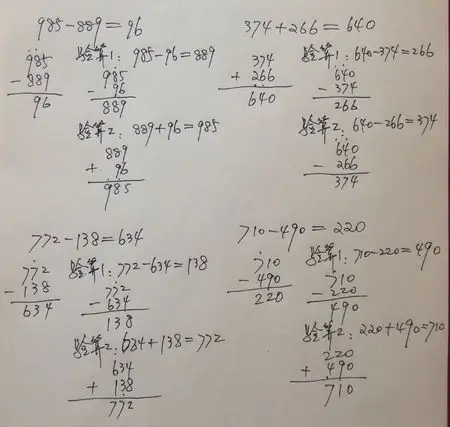 985-889=96
985
-889
96
验算1: 985-96=889
985
- 96
889
验算2: 889+96=985
889
+ 96
985
374+266=640
374
+ 266
640
验算1: 640-374=266
640
- 374
266
验算2: 640-266=374
640
- 266
374
772-138=634
772
- 138
634
验算1: 772-634=138
772
- 634
138
验算2: 634+138=772
634
+ 138
772
710-490=220
710
- 490
220
验算1: 710-220=490
710
- 220
490
验算2: 220+490=710
220
+ 490
710